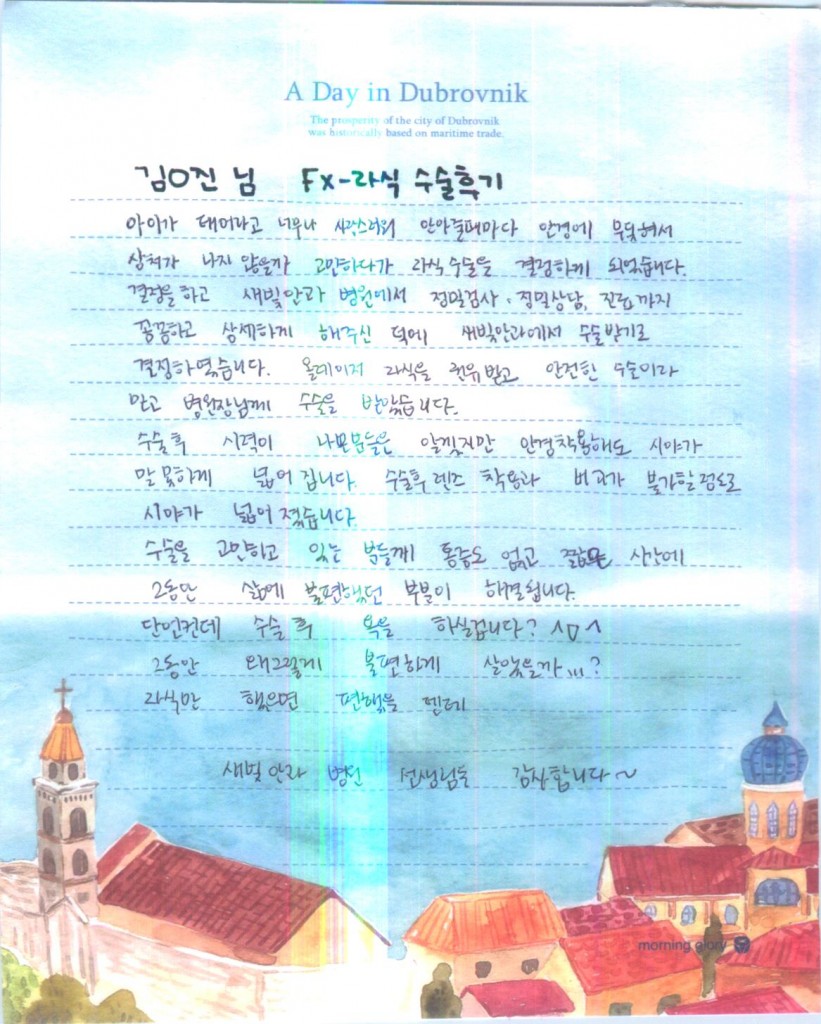 A Day in Dubrovnik
The prosperity of the city of Dubrovnik
was historically based on maritime trade.
김O진 님 FX-라식 수술후기
아이가 태어나고 너무나 사랑스러워 안아줄때마다 안경에 부딪혀서
상처가 나지 않을까 고민하다가 라식수술을 결정하게 되었습니다.
결정을 하고 새빛안과 병원에서 정밀검사, 정밀상담, 진료까지
꼼꼼하고 상세하게 해주신 덕에 새빛안과에서 수술받기로
결정하였습니다. 올레이저 라식을 권유받고 안전한 수술이라
믿고 병원장님께 수술을 받았습니다.
수술후 시력이 나쁜분들은 알겠지만 안경착용해도 시야가
말 못하게 넓어 집니다. 수술후 렌즈 착용과 비교가 불가할정도로
시야가 넓어 졌습니다
수술을 고민하고 있는 분들께 통증도 없고 짧은 시간에
그동안 삶에 불편했던 부분이 해결됩니다.
단언컨데 수술 후 욕을 하실겁니다? ^ㅁ^
그동안 왜그렇게 불편하게 살았을까...?
라식만 했으면 편했을 텐데
새빛안과 병원 선생님들 감사합니다~
morning glory